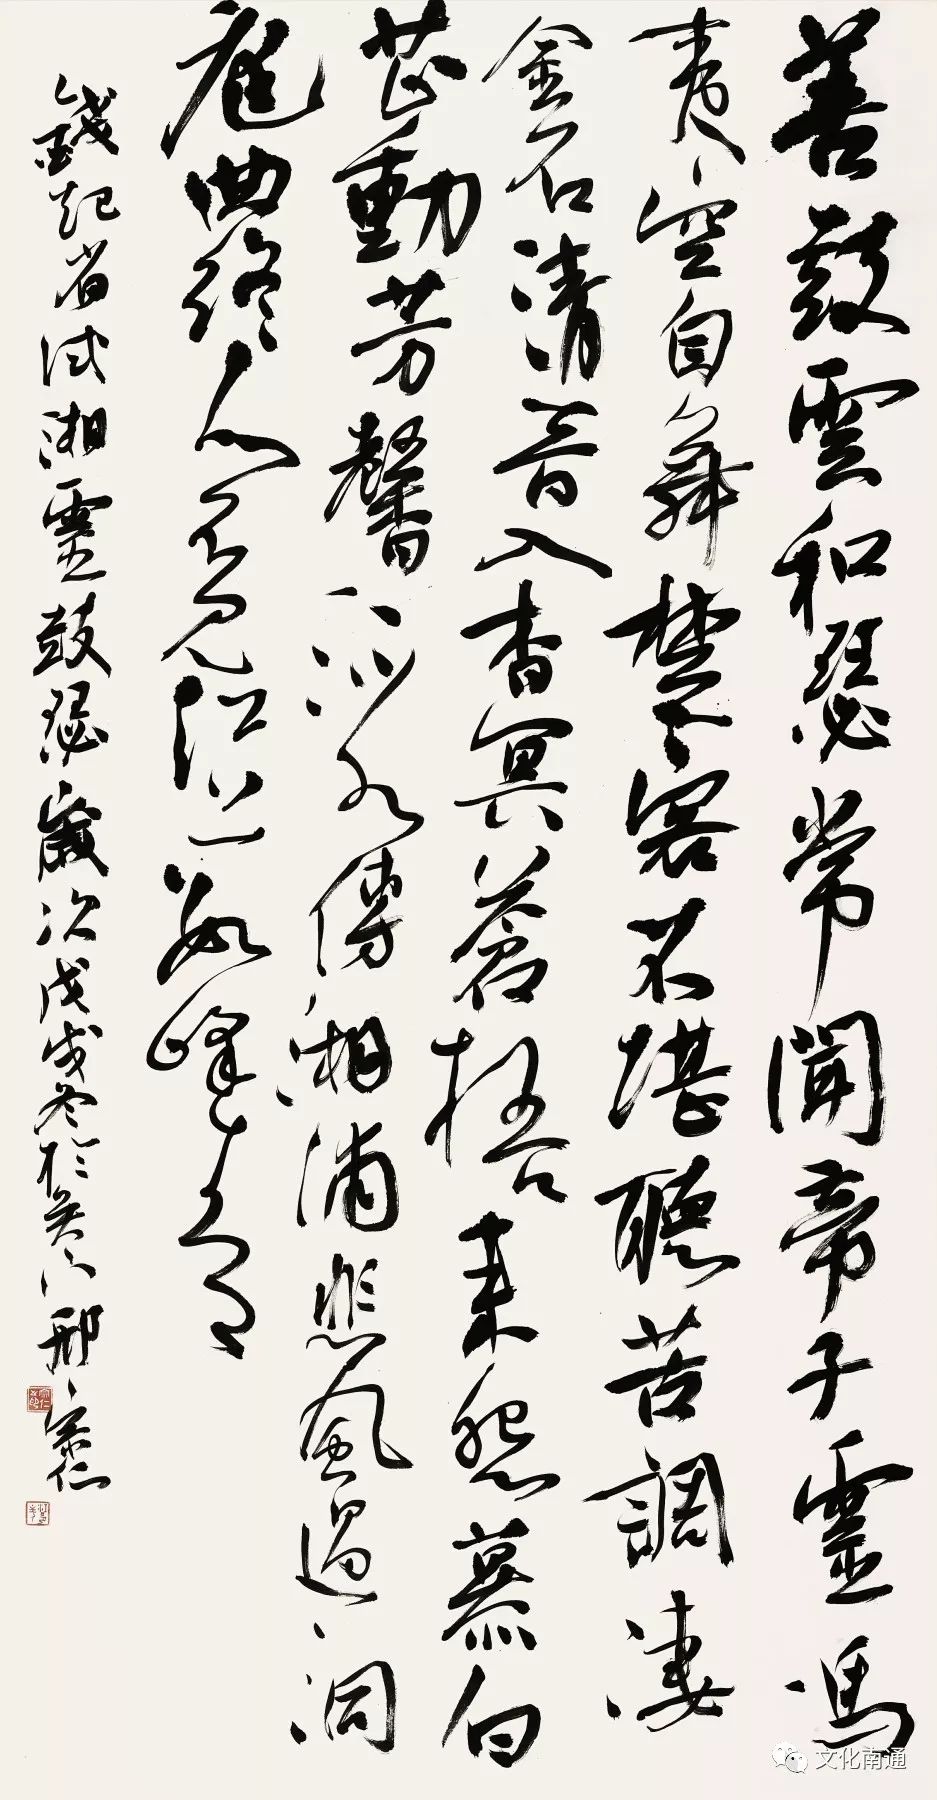 善鼓雲和瑟常聞帝子靈馮
夷空自舞楚客不堪聽苦調淒
金石清音入杳冥蒼梧來怨慕白
芷動芳馨流水傳湘浦悲風過洞
庭曲終人不見江上數峰青
錢起省試湘靈鼓瑟歲次戊戌冬於吳門邢宗仁
文化南通